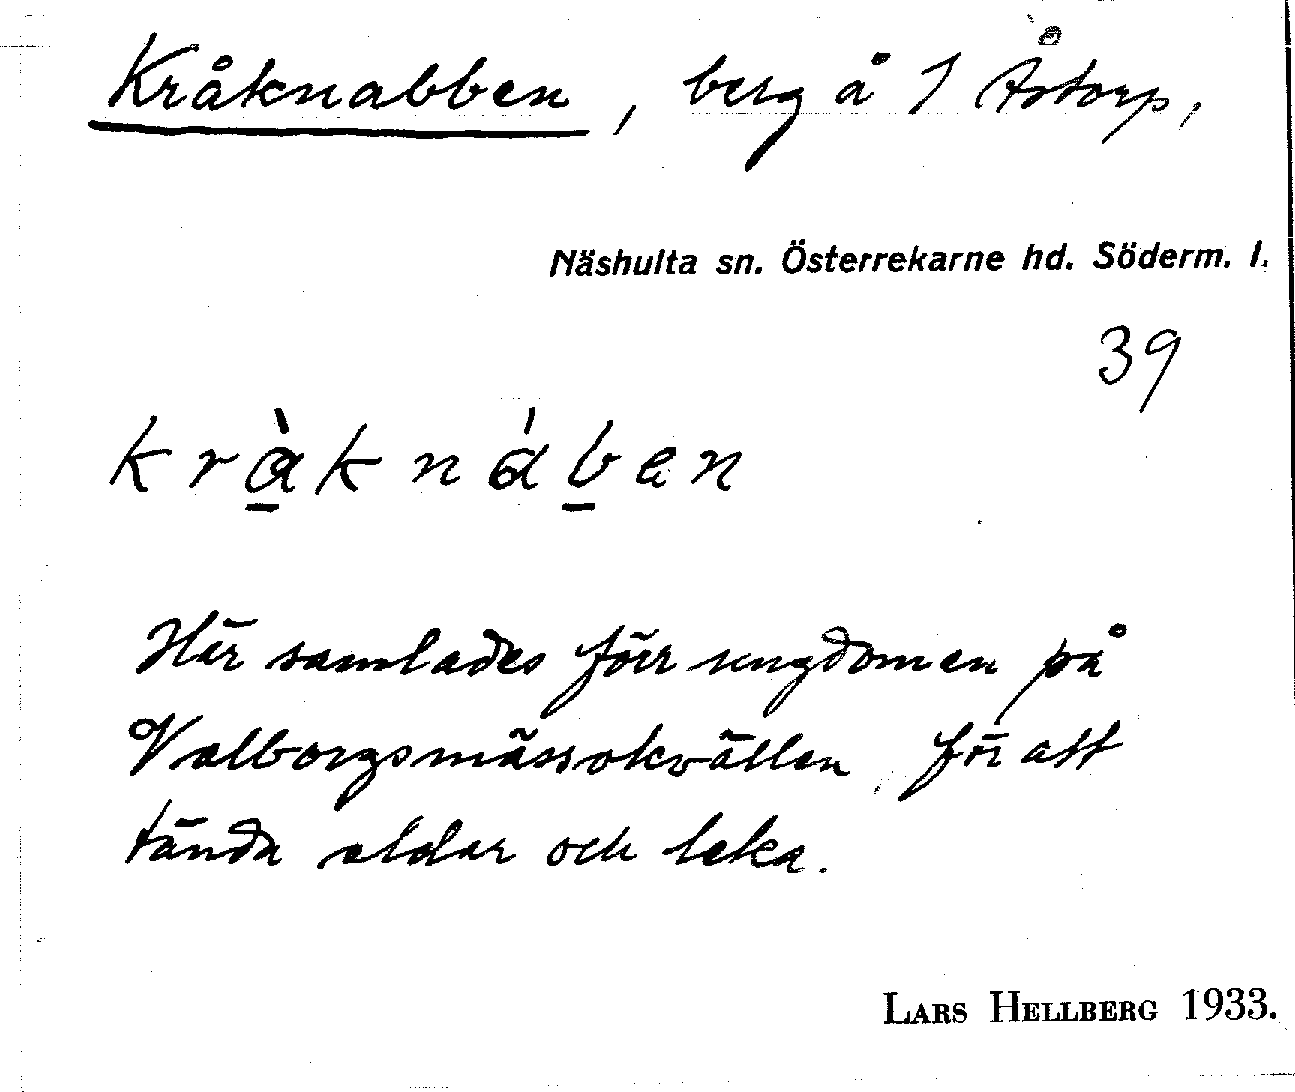 Kråknabben, berg å 1 Åstorp,
Näshulta sn. Österrekarne hd. Söderm. l.
39
krạ̀knáb̠en
Här samlades förr ungdomen på
Valborgsmässokvällen för att
tända eldar och leka.
LARS HELLBERG 1933.